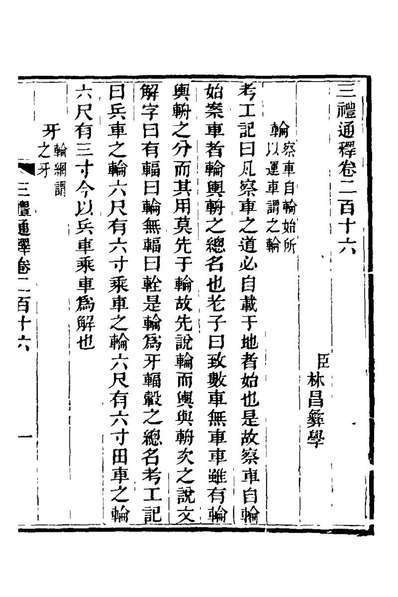 三禮通釋卷二百十六
臣林昌彝學
輪 察車自輪始所以運車謂之輪
考工記曰凡察車之道必自載于地者始也是故察車自輪
始案車者輪輿輈之總名也老子曰致數車無車車雖有輪
輿輈之分而其用莫先于輪故先說輪而輿與輈次之說文
解字曰有輻曰輪無輻曰輇是輪爲牙輻轂之總名考工記
曰兵車之輪六尺有六寸乘車之輪六尺有六寸田車之輪
六尺有三寸今以兵車乘車爲解也
牙 輪網謂之牙
三禮通釋卷二百十六 一